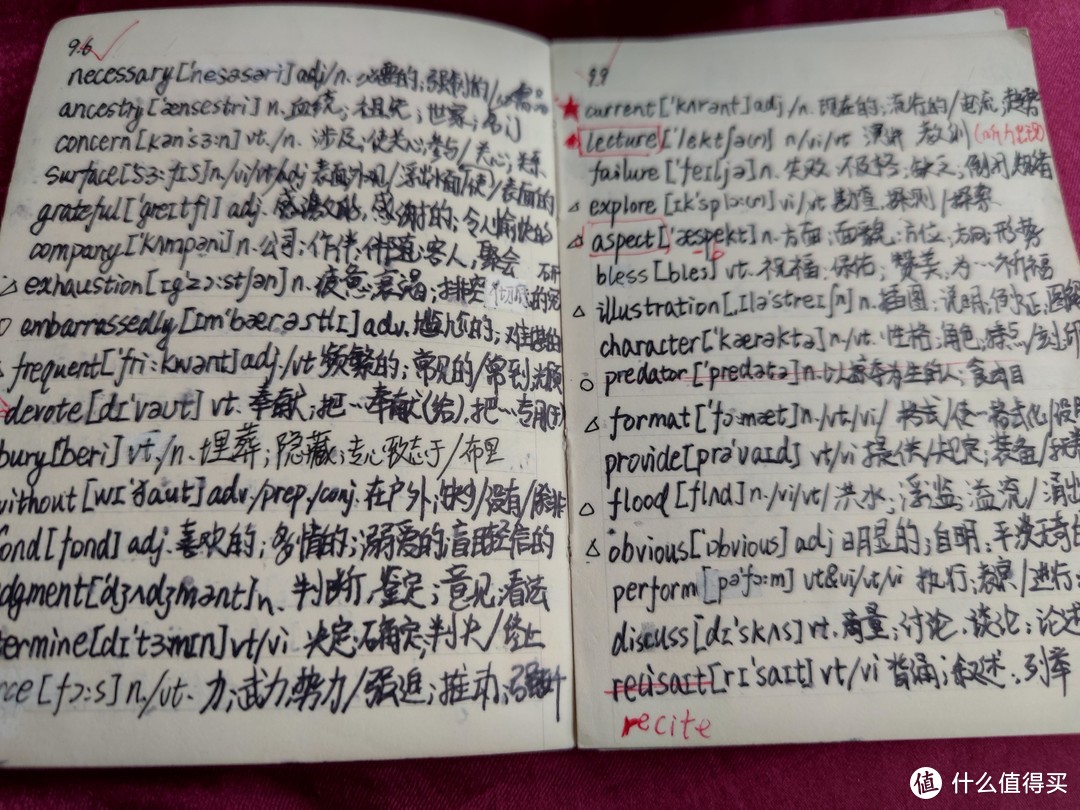 9.6
necessary['nesəsəri] adj/n. 必要的;强制的/必需品
ancestry['ænsestri] n. 血统;祖先;世家;名门
concern[kən'sɜ:n] vt./n. 涉及;使关心;参与/关心;关系
surface['sɜ:fɪs] n/vi/vt/adj 表面;外观/浮出水面(使)/表面的
grateful['greɪtfl] adj. 感激的;感谢的;令人愉快的
company['kʌmpəni] n. 公司;作伴;客人,聚会
△ exhaustion[ɪg'zɔ:stʃən] n. 疲惫;衰竭;排空
○ embarrassedly[ɪm'bærəstlɪ] adv.
frequent['fri:kwənt] adj./vt 频繁的;常见的/常到
devote[dɪ'vəʊt] vt. 奉献;把…奉献(给),把…专用于
bury['beri] vt./n. 埋葬;隐藏;专心致志于/布里
without[wɪ'ðaʊt] adv./prep./conj. 在户外;缺少/没有/除非
fond[fɒnd] adj. 喜欢的;多情的;溺爱的;盲目轻信的
dgment['dʒʌdʒmənt] n. 判断,鉴定;意见;看法
termine[dɪ'tɜ:mɪn] vt/vi 决定;确定;判决/终止
rce[fɔ:s] n./vt. 力;武力;势力/强迫;推动;
9.9
★ current['kʌrənt] adj/n. 现在的;流行的/趋势
lecture['lektʃə(r)] n/vi/vt 演讲 教训
failure['feɪljə] n. 失败 不及格;缺乏;倒闭
△ explore[ɪk'splɔ:(r)] vi/vt 勘查,探测/探索
△ aspect['æspekt] n. 方面;面貌;方位,方向;形势
b
bless[bles] vt. 祝福;保佑;赞美,为…祈福
△ illustration[ˌɪlə'streɪʃn] n. 插图;说明;例证;图解
character['kærəktə] n/vt. 性格;角色;特点/刻印
○ predator['predətə] n. 以掠夺为生的人;食肉目
△ format['fɔ:mæt] n./vt/vi/ 格式/使…格式化/设
provide[prə'vaɪd] vt/vi 提供/规定;装备/
○ flood[flʌd] n./vi/vt/ 洪水;浮监;溢流/涌出
△ obvious['ɒbviəs] adj 明显的;自明,平淡无奇的
perform[pə'fɔ:m] vt&vi/vt/vi 执行;表演/进行;
discuss[dɪ'skʌs] vt. 商量;讨论.谈论;论述
recisait[rɪ'saɪt] vt/vi 背诵;叙述,列举
recite
值 什么值得买